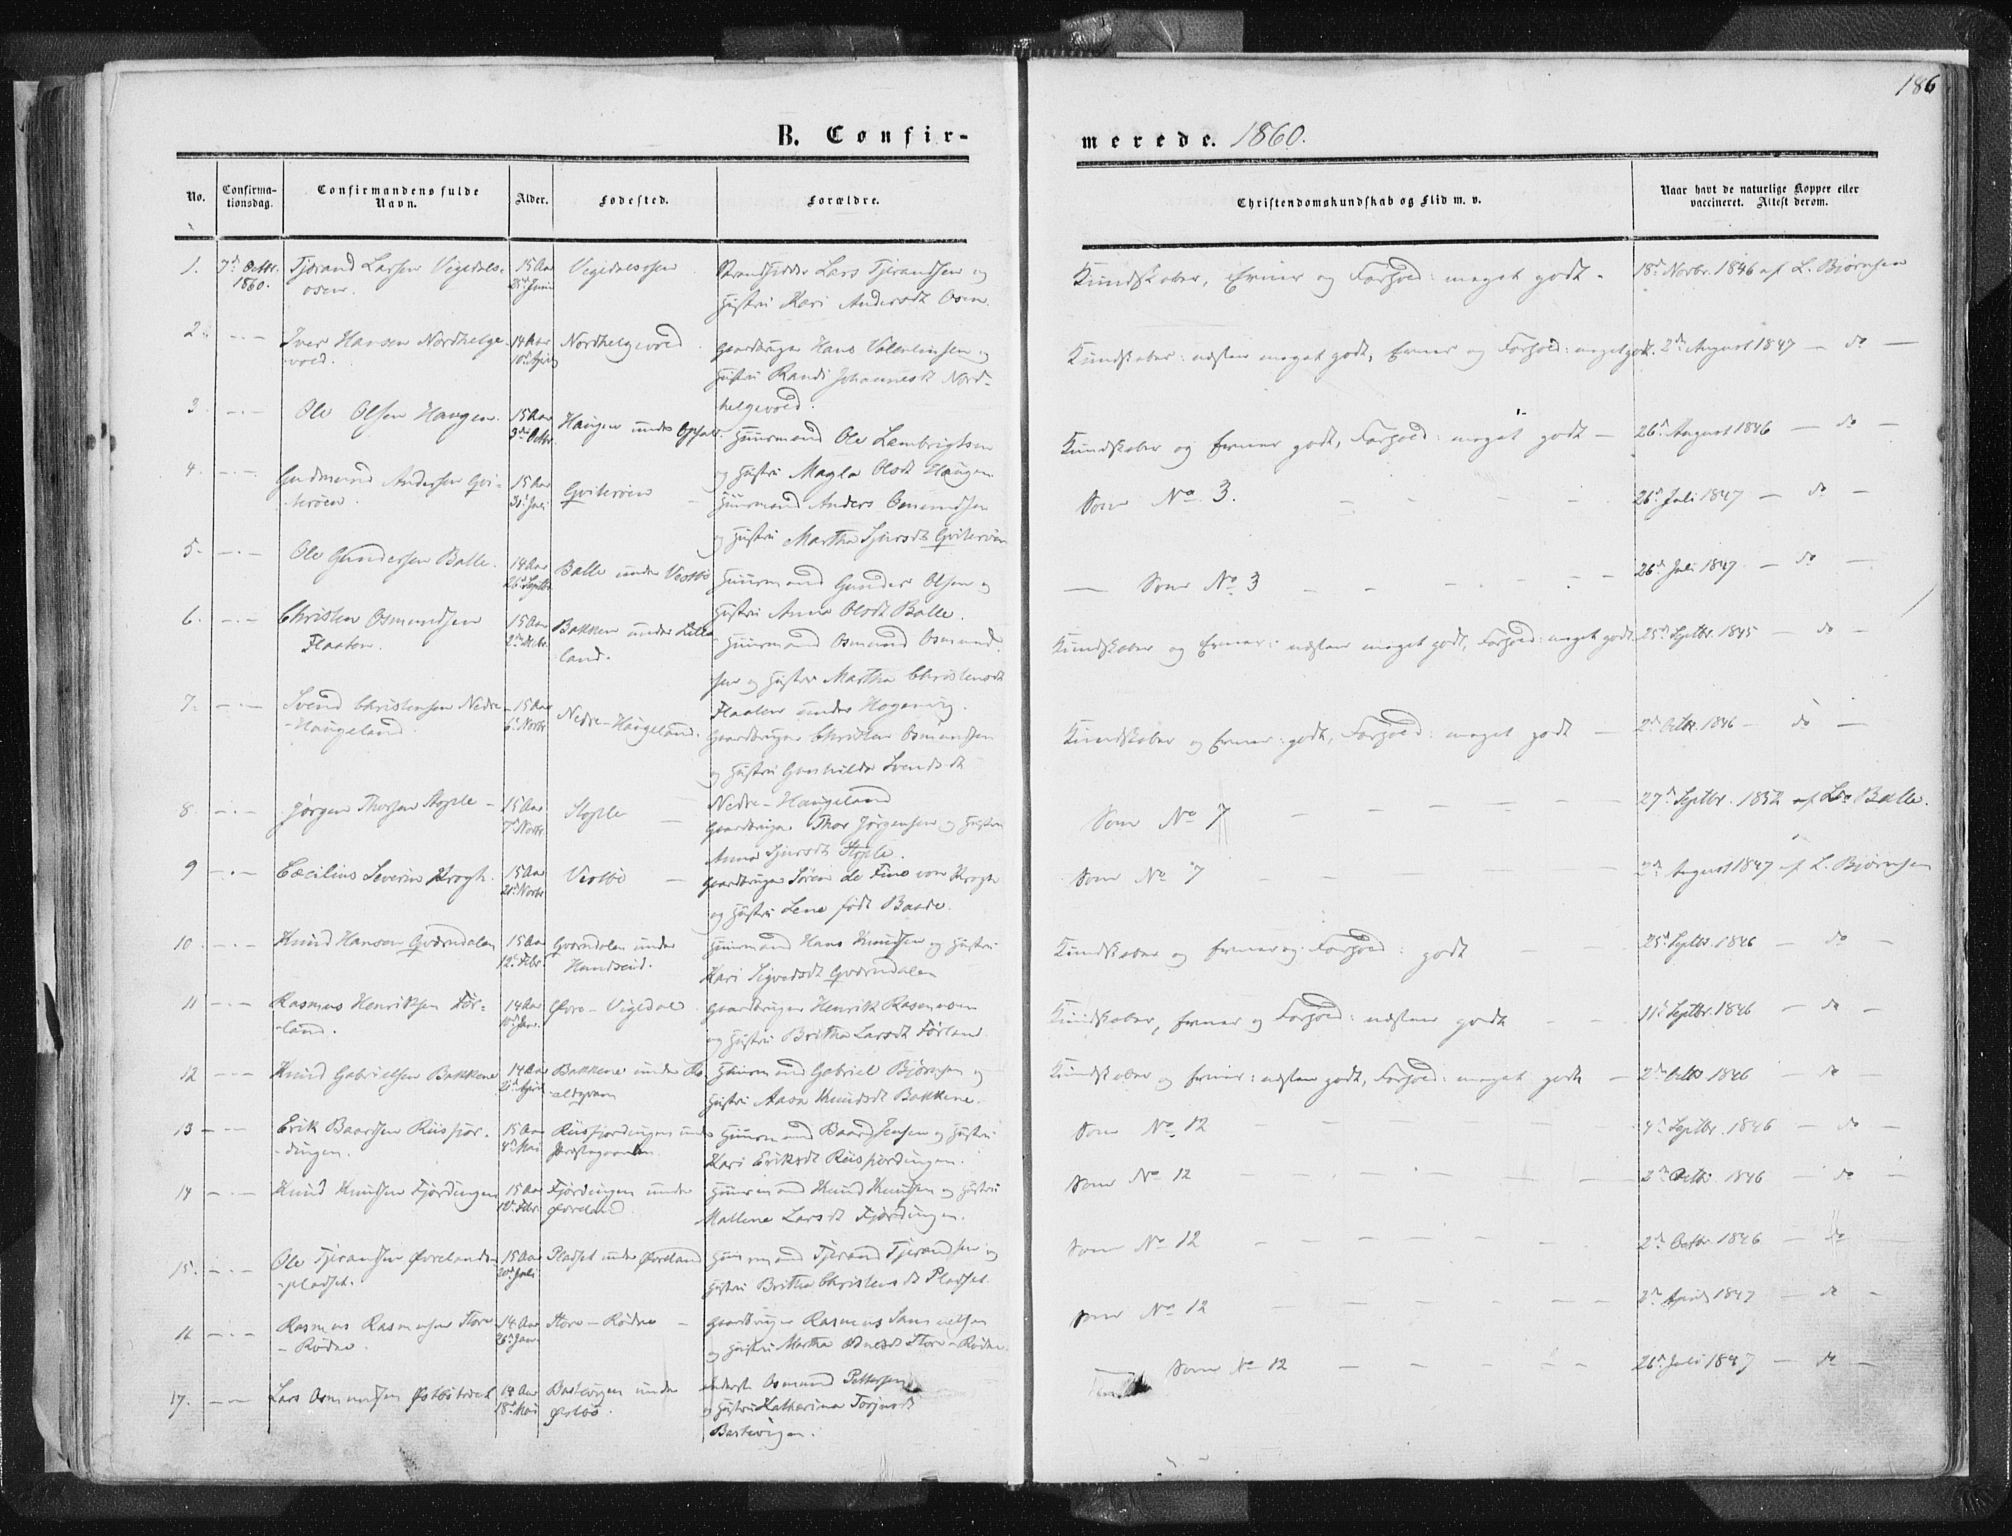 186
B. Confir-
merede. 1860.
No.
Confirma-
tionsdag.
Confirmandens fulde
Navn.
Alder.
Fødested.
Forældre.
Christendomskundskab og Flid m. v.
Naar havt de naturlige Kopper eller
vaccineret. Attest derom.
1. 7de Octbr. Tjerand Larsen Vigedals- 15 Aar Vigedalsosen Strandsidder Lars Tjerandsen og Kundskaber, Evner og Forhold: meget godt. 18de Novbr. 1846 af L. Bjørnsen
1860. osen. Hustru Kari Andersdt Osen.
2. Iver Hansen Nordhelge- 14 Aar Nordhelgevold Gaardbruger Hans Valentinsen og Kundskaber: næsten meget godt, Evner og Forhold: meget godt. 2de August 1847 — do —
vold. 10de April Hustru Randi Johannesdt Nord-
helgevold.
3. Ole Olsen Haugen. 15 Aar Haugen under Huusmand Ole Lambrigtsen Kundskaber og Evner godt, Forhold: meget godt — 26de August 1846 — do —
og Hustru Magla Olsdt Haugen
4. Gudmund Andersen Qvi- 15 Aar Qviterøen Huusmand Anders Osmundsen Som No. 3. 26de Juli 1847 — do —
terøen. Juli og Hustru Martha Sjursdt Qviterøen
5. Ole Gundersen Balle. 14 Aar Balle under Vestbø Huusmand Gunder Olsen og Som No 3 26de Juli 1847 — do —
26de Septbr Hustru Anna Olsdt Balle.
6. Christen Osmundsen 15 Aar Bakken under Lille- Huusmand Osmund Osmund- Kundskaber og Evner: næsten meget godt, Forhold: meget godt 25de Septbr. 1845 — do —
Flaaten. land. sen og Hustru Martha Christensdt
Flaaten under
7. Svend Christensen Nedre- 15 Aar Nedre-Haugeland. Gaardbruger Christen Osmundsen Kundskaber og Evner: godt, Forhold: meget godt — 2de Octbr. 1846 — do —
-Haugeland 6te Novbr og Hustru Gunhilde Svendsdt
Nedre-Haugeland
8. Jørgen Thorsen Stople 15 Aar Stople Gaardbruger Thor Jørgensen og Hustru Som No 7 27de Septbr. 1852 af Balle.
7de Novbr Anna Sjursdt Stople.
9 Cæcilius Severin Krogh. 15 Aar Vestbø Gaardbruger Søren de Fine von Krogh Som No 7 2de August 1847 af L. Bjørnsen
21de Novbr og Hustru Lene født Baade.
10. Knud Hansen Qværndalen 15 Aar Qværndalen under Huusmand Hans Knudsen og Hustru Kundskaber og Evner og Forhold: godt 25de Septbr. 1846 — do —
12te Febr. Handseid. Kari Sigvedsdt Qværndalen
11 Rasmus Henriksen Før- 14 Aar Øvre-Vigedal Gaardbruger Henrik Rasmussen Kundskaber, Evner og Forhold: næsten godt 11te Septbr. 1846 — do —
-land. og Hustru Britha Larsdt Førland.
12 Knud Gabrielsen Bakkene 14 Aar Bakkene under Huusmand Gabriel Bjørnsen og Kundskaber og Evner: næsten godt, Forhold: meget godt — 2de Octbr 1846 — do —
April Hustru Aasa Knudsdt Bakkene.
13 Erik Baardsen Riisfjor- 15 Aar Riisfjordingen under Huusmand Baard Jensen og Hustru Som No. 12 4de Septbr. 1846 — do —
-dingen. 4de Mai Præstegaarden Kari Eriksdt Riisfjordingen.
14 Knud Knudsen Fjordingen 15 Aar Fjordingen under Huusmand Knud Knudsen og Hustru Som No 12 2de Octbr. 1846 — do —
Febr. Øvreland. Mallene Larsdt Fjordingen.
15. Ole Tjerandsen Øvrelands- 15 Aar Pladset under Øvreland Huusmand Tjerand Tjerandsen og Som No 12 2de Octbr. 1846 — do
-pladset. 20de Juli Hustru Britha Christensdt Pladset.
16 Rasmus Rasmussen Store- 14 Aar Store-Rødne Gaardbruger Rasmus Samuelsen Som No 12 2de April 1847 — do —
-Rødne. 26de Jan. og Hustru Martha Store-Rødne.
17. Lars Osmundsen 14 Aar Bastevigen under Osmund Pettersen Som No 12 26de Juli 1847 — do —
18de Mai Østbø. og Hustru Katharina Torjusdt
Bastevigen.